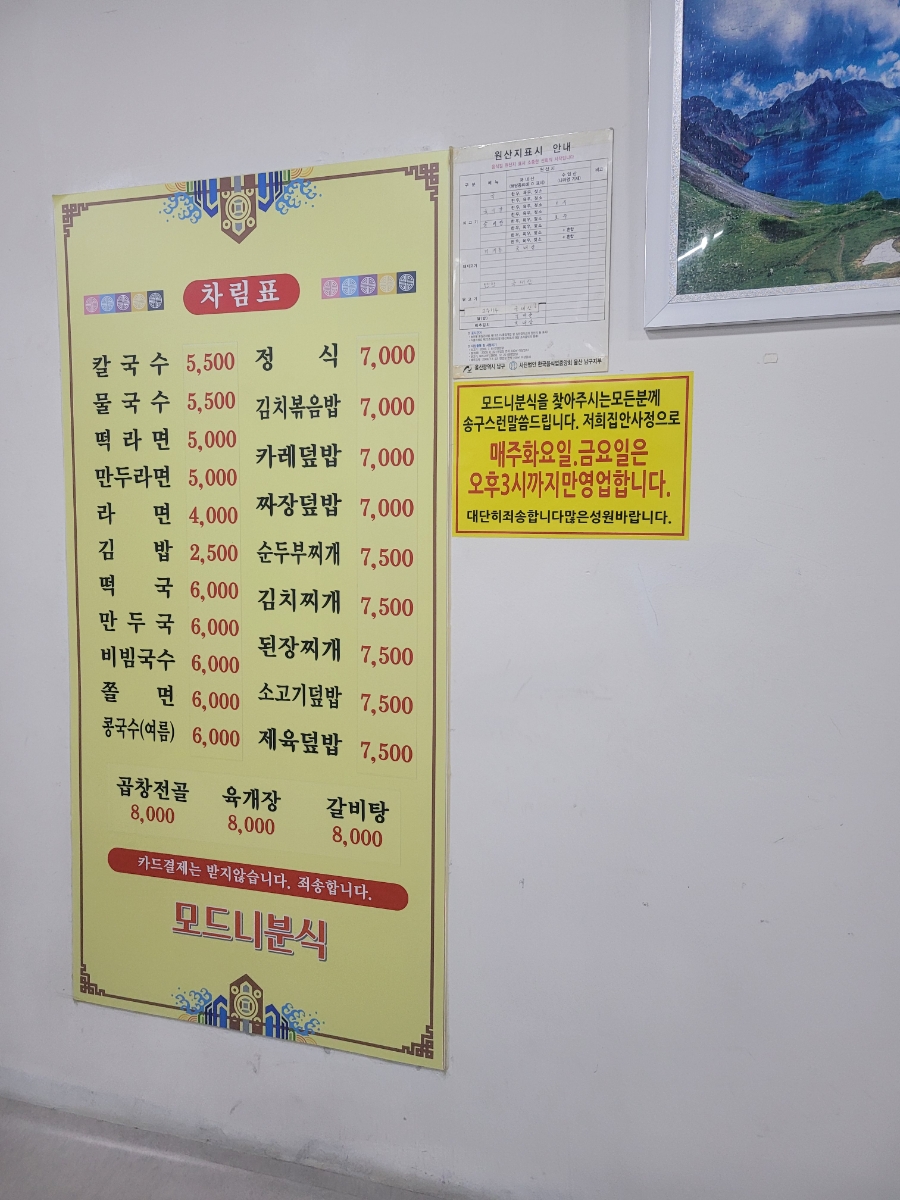 차림표
칼국수 5,500
물국수 5,500
떡라면 5,000
만두라면 5,000
라면 4,000
김밥 2,500
떡국 6,000
만두국 6,000
비빔국수 6,000
쫄면 6,000
콩국수(여름) 6,000
정식 7,000
김치볶음밥 7,000
카레덮밥 7,000
짜장덮밥 7,000
순두부찌개 7,500
김치찌개 7,500
된장찌개 7,500
소고기덮밥 7,500
제육덮밥 7,500
곱창전골 육개장 갈비탕
8,000 8,000 8,000
카드결제는 받지않습니다. 죄송합니다.
모드니분식
원산지표시 안내
울산광역시 남구 사단법인 한국음식업중앙회 울산 남구지부
모드니분식을 찾아주시는모든분께
송구스런말씀드립니다. 저희집안사정으로
매주화요일.금요일은
오후3시까지만영업합니다.
대단히죄송합니다많은성원바랍니다.